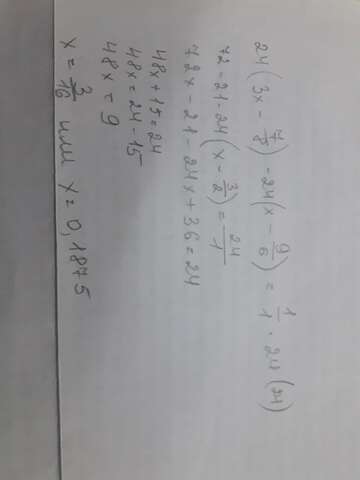 24(3x - 7/8) - 24(x - 9/6) = 1/1 · 24 (24)
72 - 21 - 24(x - 3/2) = 24/1
72x - 21 - 24x + 36 = 24
48x + 15 = 24
48x = 24 - 15
48x = 9
x = 3/16 или x = 0,1875